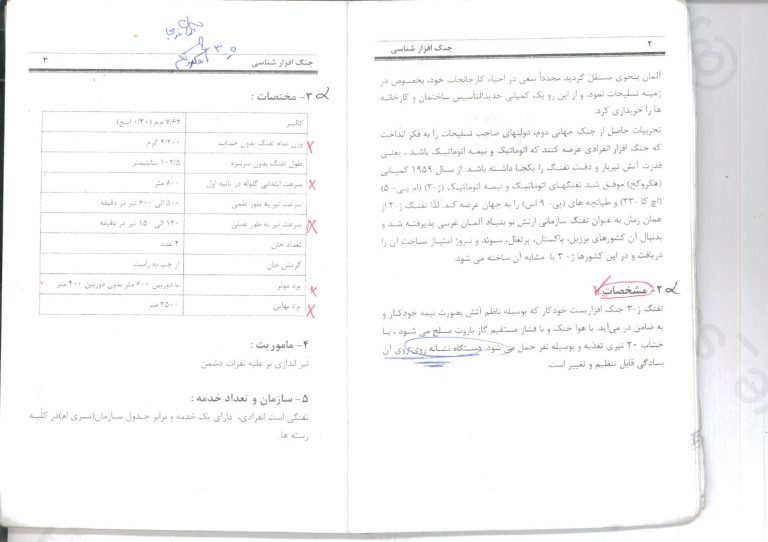 ۲
جنگ افزار شناسی
آلمان بنحوی مستقل گردید مجدداً سعی در احیاء کارخانجات خود، بخصوص در
زمینه تسلیحات نمود. و از این رو یک کمپانی جدیدالتأسیس ساختمان و کارخانه
ها را خریداری کرد.
تجربیات حاصل از جنگ جهانی دوم، دولتهای صاحب تسلیحات را به فکر انداخت
که جنگ افزار انفرادی عرضه کنند که اتوماتیک و نیمه اتوماتیک باشد . یعنی
قدرت آتش تیربار و دقت تفنگ را یکجا داشته باشد. از سال ۱۹۵۹ کمپانی
(هکروکخ) موفق شد تفنگهای اتوماتیک و نیمه اتوماتیک (ژ-۳) (ام پی- ۵)
(اچ کا -۳۳) و طپانچه های (پی- ۹ اس) را به جهان عرضه کند. لذا تفنگ ژ-۳ از
همان زمان به عنوان تفنگ سازمانی ارتش نو بنیاد آلمان غربی پذیرفته شد و
بدنبال آن کشورهای برزیل، پاکستان، پرتغال، سوئد و نروژ امتیاز ساخت آن را
دریافت و در این کشورها ژ-۳ یا مشابه آن ساخته می شود.
۲- مشخصات :
تفنگ ژ-۳ جنگ افزاریست خودکار که بوسیله ناظم آتش بصورت نیمه خودکار و
به ضامن در می‌آید. با هوا خنک و با فشار مستقیم گاز باروت مسلح می شود ، با
خشاب ۲۰ تیری تغذیه و بوسیله نفر حمل می شود. دستگاه نشانه روی روی آن
بسادگی قابل تنظیم و تغییر است.
جنگ افزار شناسی
۳
۳- مختصات :
کالیبر ۷/۶۲ م.م (۰/۳۰ اینچ)
وزن تمام تفنگ بدون خشاب ۴/۳۰۰ گرم
طول تفنگ بدون سرنیزه ۱۰۲/۵ سانتیمتر
سرعت ابتدایی گلوله در ثانیه اول ۸۰۰ متر
سرعت تیر به طور علمی ۵۰۱ الی ۶۰۰ تیر در دقیقه
سرعت تیر به طور عملی ۱۲۰ الی ۱۵۰ تیر در دقیقه
تعداد خان ۴ عدد
گردش خان از چپ به راست
برد موثر با دوربین ۶۰۰ متر بدون دوربین ۴۰۰ متر
برد نهایی ۳۵۰۰ متر
۴- ماموریت :
تیر اندازی بر علیه نفرات دشمن
۵- سازمان و تعداد خدمه :
تفنگی است انفرادی، دارای یک خدمه و برابر جدول سازمان(سری ام)در کلّیه
رسته ها.